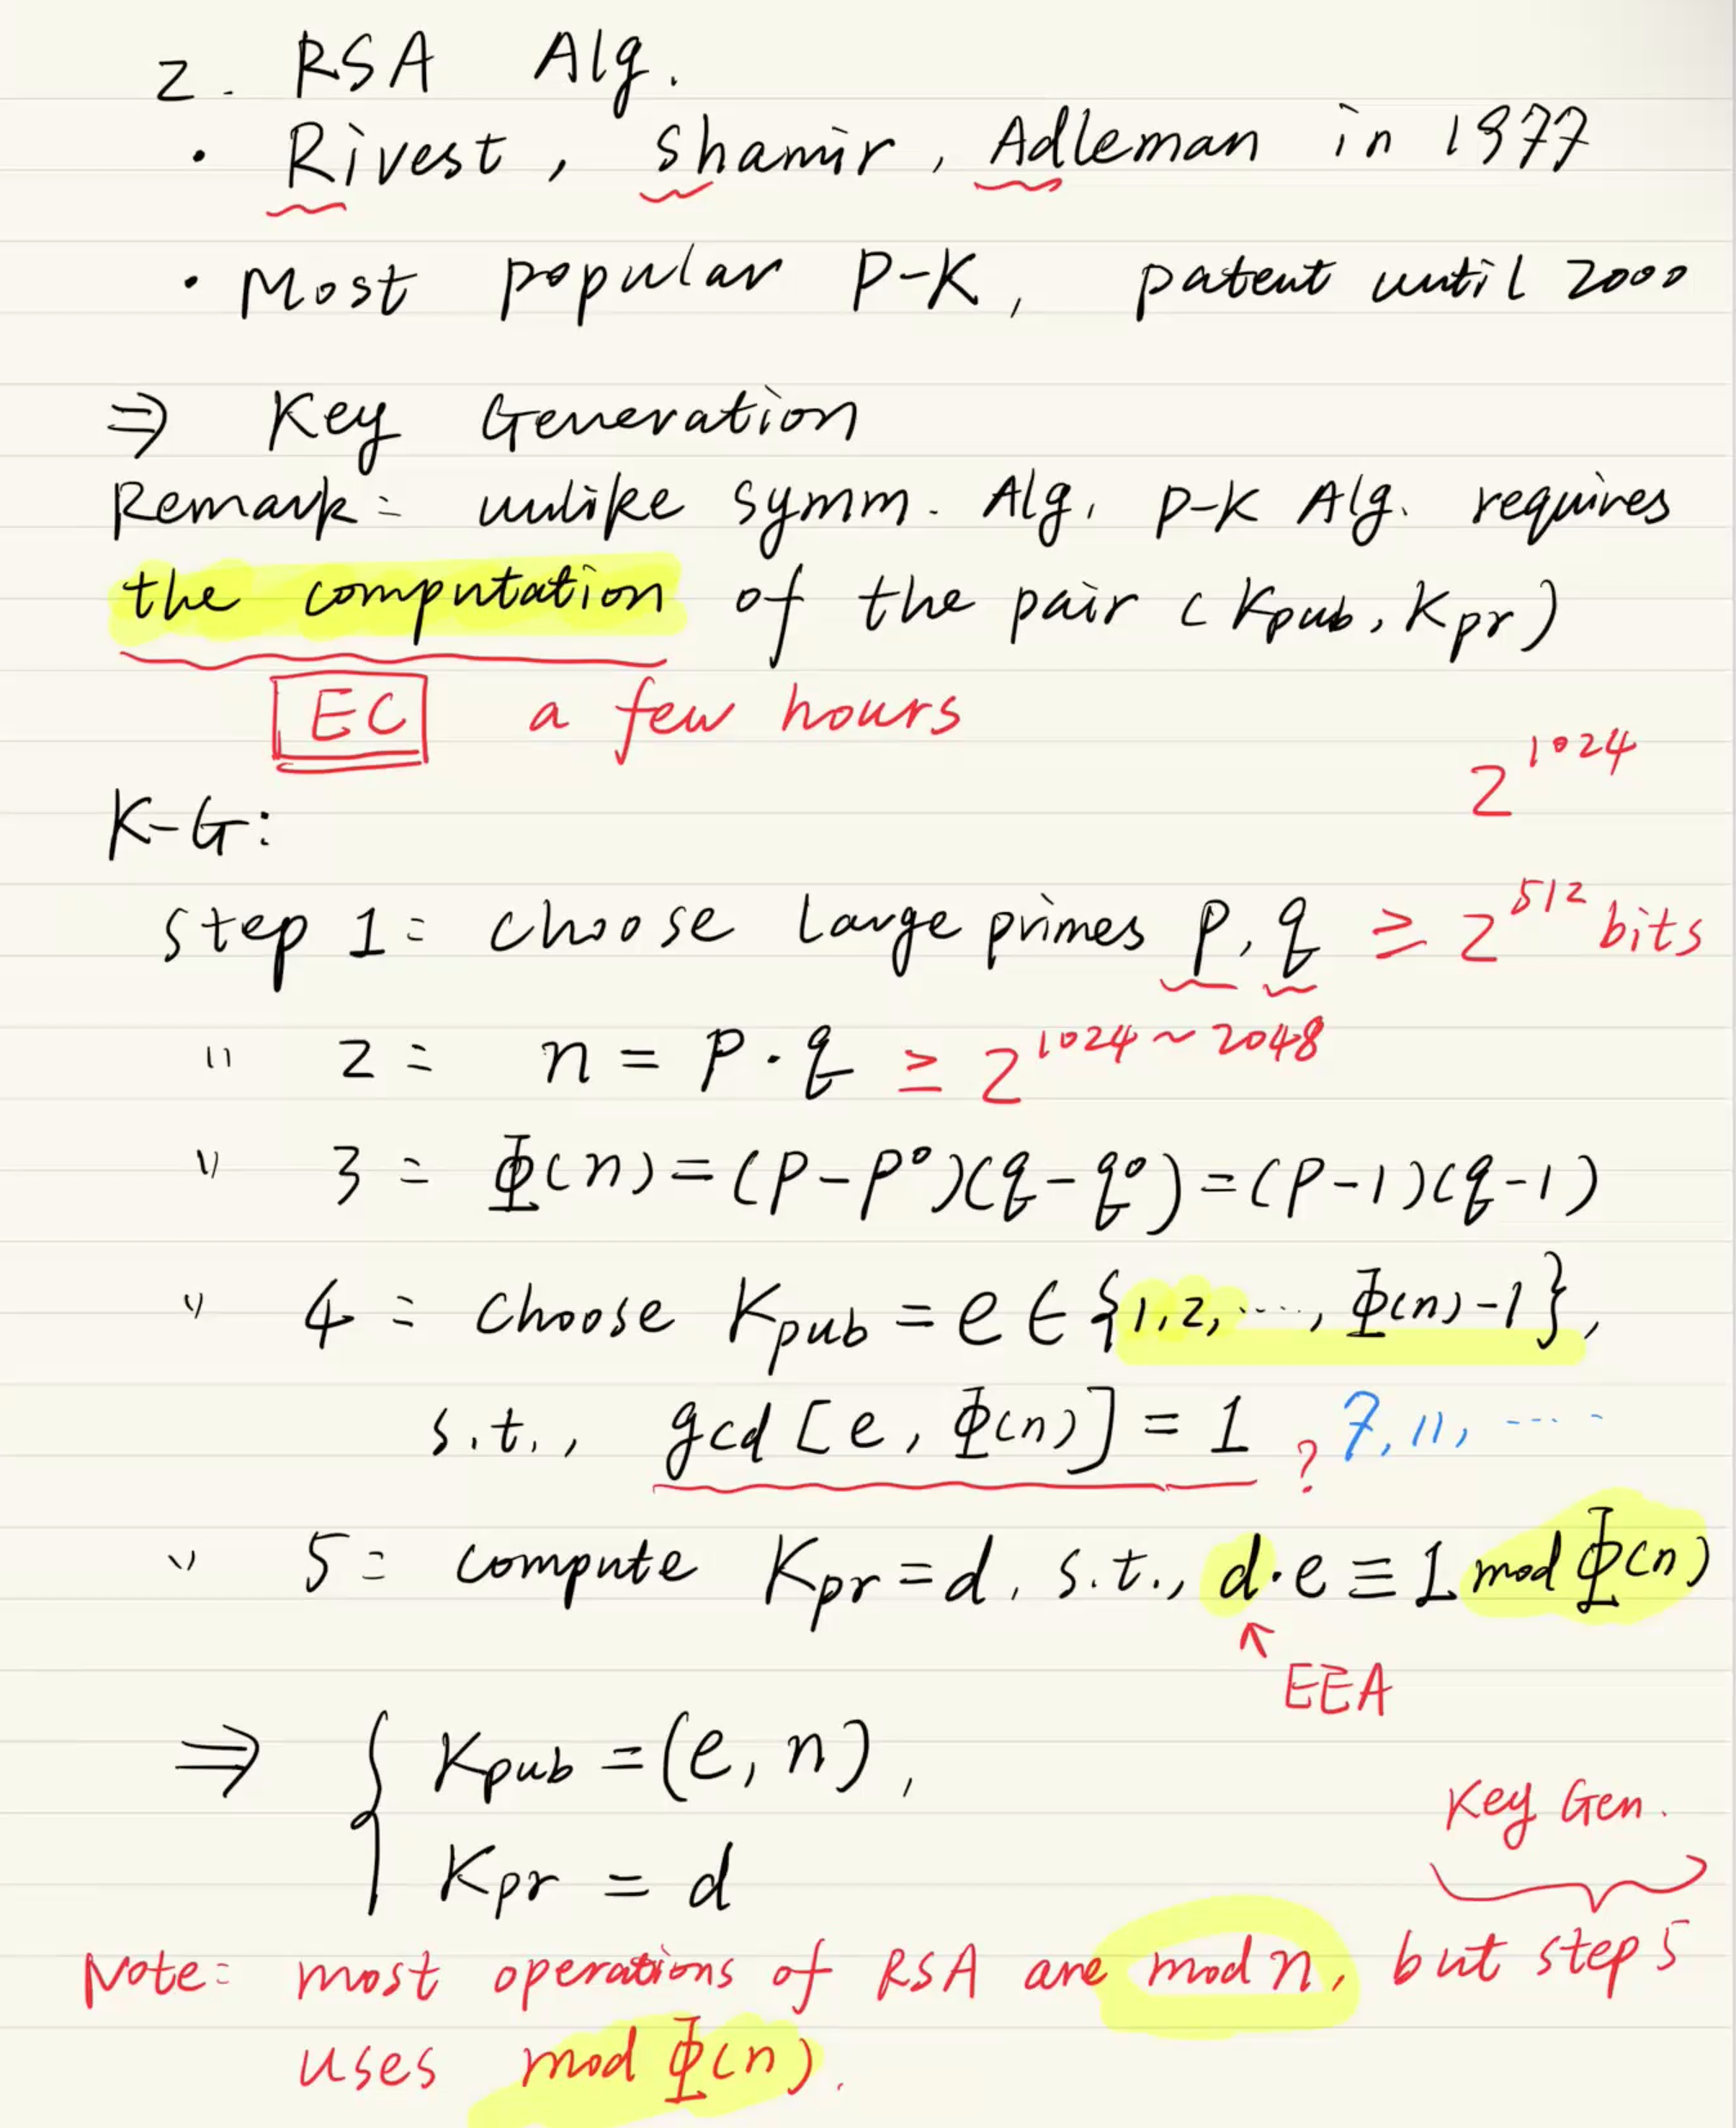 2. RSA Alg.
• Rivest, Shamir, Adleman in 1977
• Most popular P-K, patent until 2000
⇒ Key Generation
Remark: unlike symm. Alg, P-K Alg. requires
the computation of the pair (Kpub, Kpr)
EC a few hours
2^1024
K-G:
Step 1: choose large primes p, q ≥ 2^512 bits
" 2: n = p · q ≥ 2^1024~2048
" 3: Φ(n) = (p-p⁰)(q-q⁰) = (p-1)(q-1)
" 4: choose Kpub = e ∈ {1,2,····, Φ(n)-1},
s.t., gcd [e, Φ(n)] = 1 ? 7, 11, ····
" 5: compute Kpr = d, s.t., d·e ≡ 1 mod Φ(n)
↑
EEA
⇒ { Kpub = (e, n),
Kpr = d
Key Gen.
Note: most operations of RSA are mod n, but step 5
uses mod Φ(n).